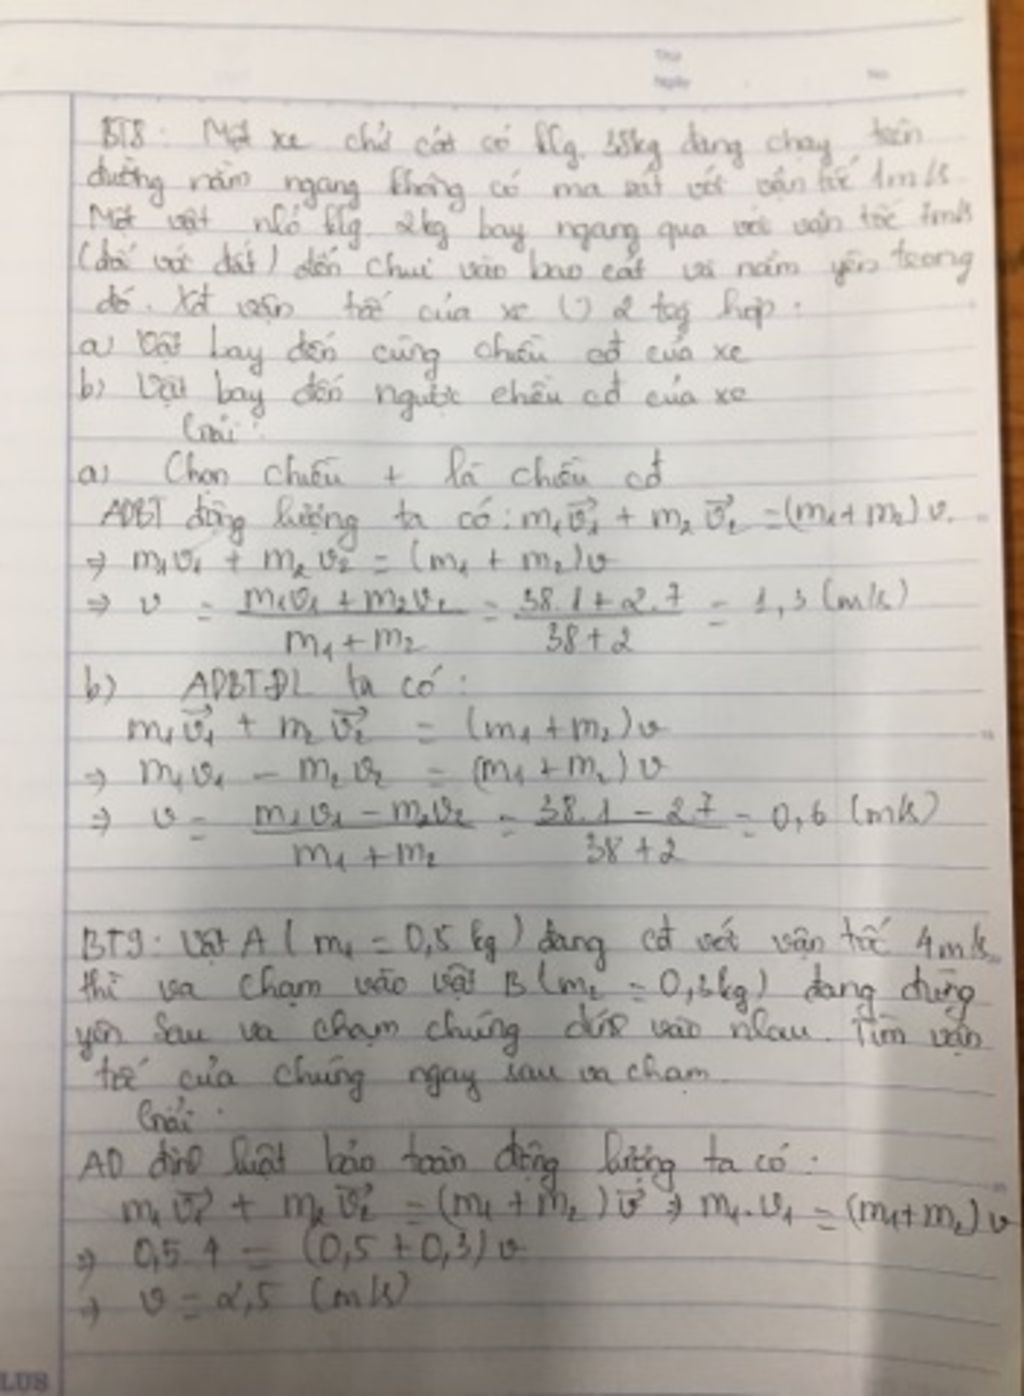 Thứ
Ngày No.
BT8: Một xe chứ cát có klg 38kg đang chạy trên
đường nằm ngang không có ma sát với vận tốc 1m/s
Một vật nhỏ klg 2kg bay ngang qua với vận tốc 7m/s
(đối với đất) đến chui vào bao cát và nằm yên trong
đó. Xđ vận tốc của xe () 2 tog hợp:
a) Vật bay đến cùng chiều cđ của xe
b) Vật bay đến ngược chiều cđ của xe
Giải:
a) Chọn chiều + là chiều cđ
ADBT động lượng ta có: m₁v⃗₁ + m₂v⃗₂ = (m₁+m₂)v.
⇒ m₁v₁ + m₂v₂ = (m₁ + m₂)v
⇒ v = (m₁v₁ + m₂v₂)/(m₁ + m₂) = (38.1+2.7)/(38+2) = 1,3 (m/s)
b) ADBTĐL ta có:
m₁v⃗₁ + m₂v⃗₂ = (m₁ + m₂)v
⇒ m₁v₁ - m₂v₂ = (m₁ + m₂)v
⇒ v = (m₁v₁ - m₂v₂)/(m₁ + m₂) = (38.1 - 2.7)/(38+2) = 0,6 (m/s)
BT9: Vật A (m₁ = 0,5 kg) đang cđ với vận tốc 4m/s
thì va chạm vào vật B (m₂ = 0,3kg) đang đứng
yên Sau va chạm chúng dính vào nhau. Tìm vận
tốc của chúng ngay sau va chạm.
Giải:
AD định luật bảo toàn động lượng ta có:
m₁v⃗₁ + m₂v⃗₂ = (m₁ + m₂)v⃗ ⇒ m₁.v₁ = (m₁+m₂)v
⇒ 0,5.4 = (0,5 + 0,3)v
⇒ v = 2,5 (m/s)
LUS